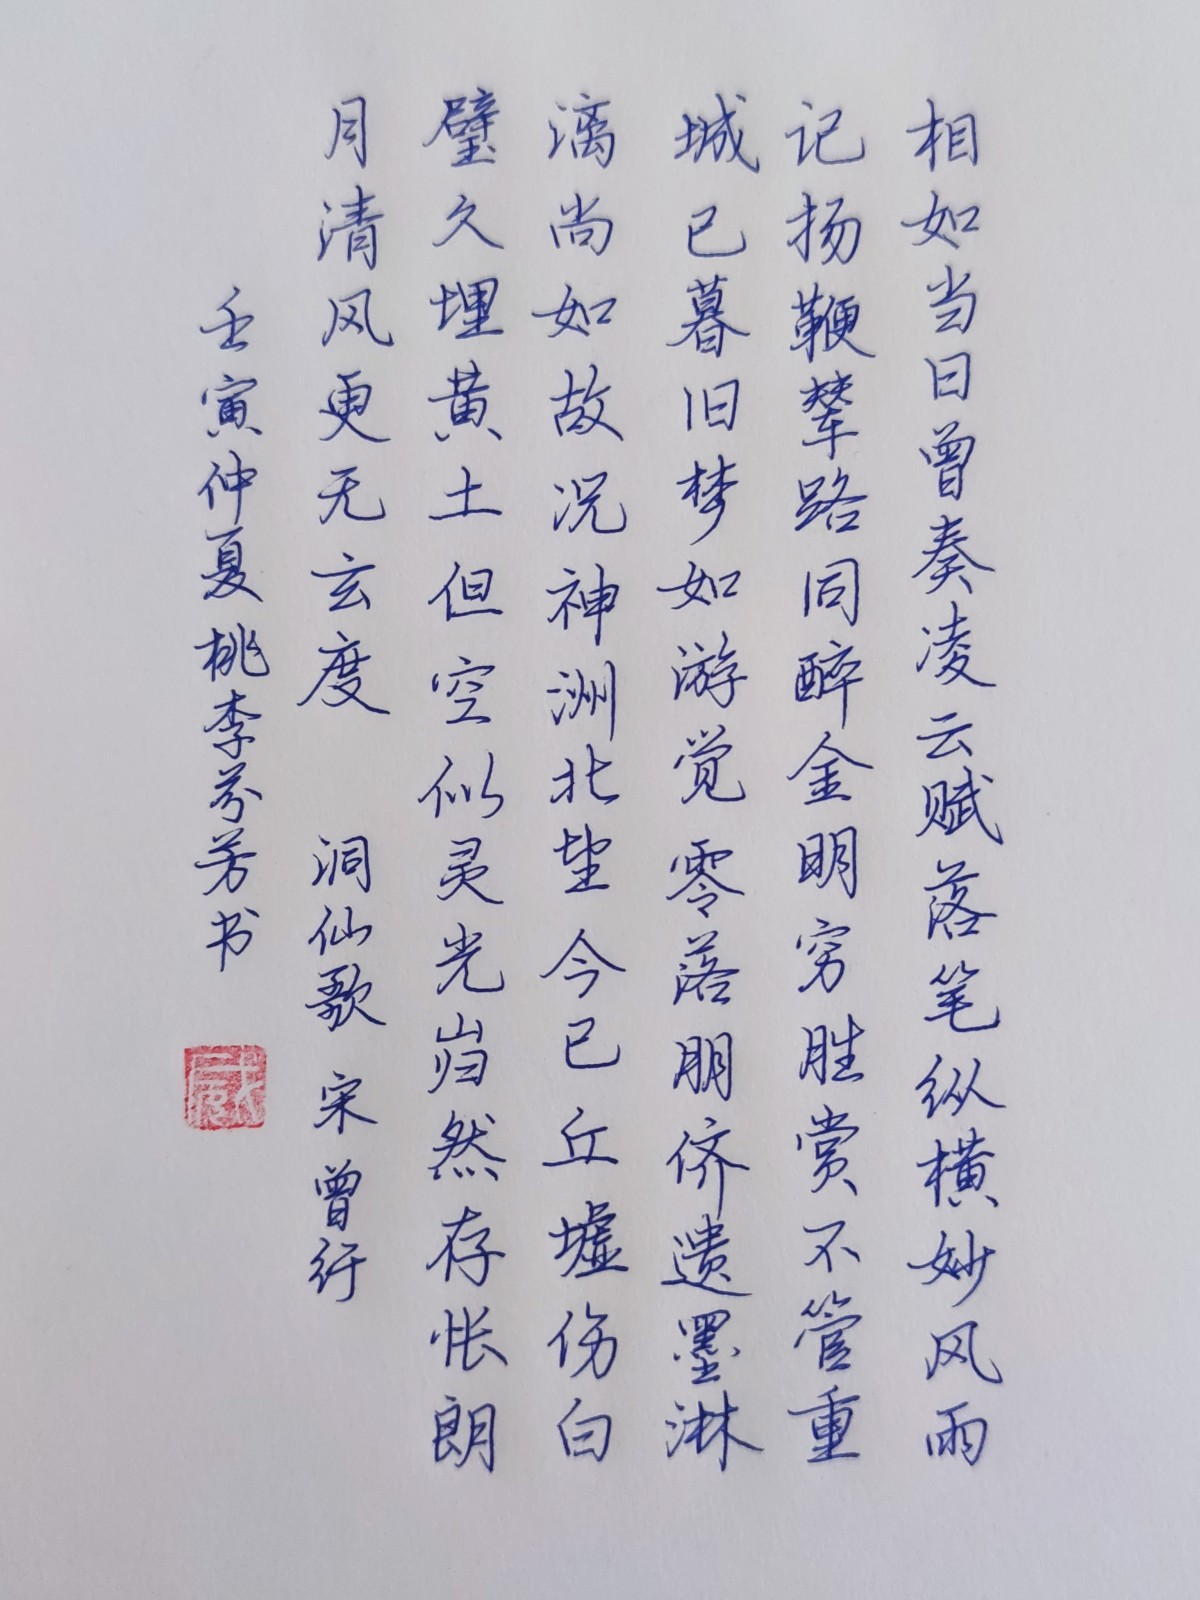 相如当日曾奏凌云赋落笔纵横妙风雨
记扬鞭辇路同醉金明穷胜赏不管重
城已暮旧梦如游觉零落朋侪遗墨淋
漓尚如故况神洲北望今已丘墟伤白
璧久埋黄土但空似灵光岿然存怅朗
月清风更无玄度 洞仙歌 宋 曾行
壬寅仲夏桃李芬芳书